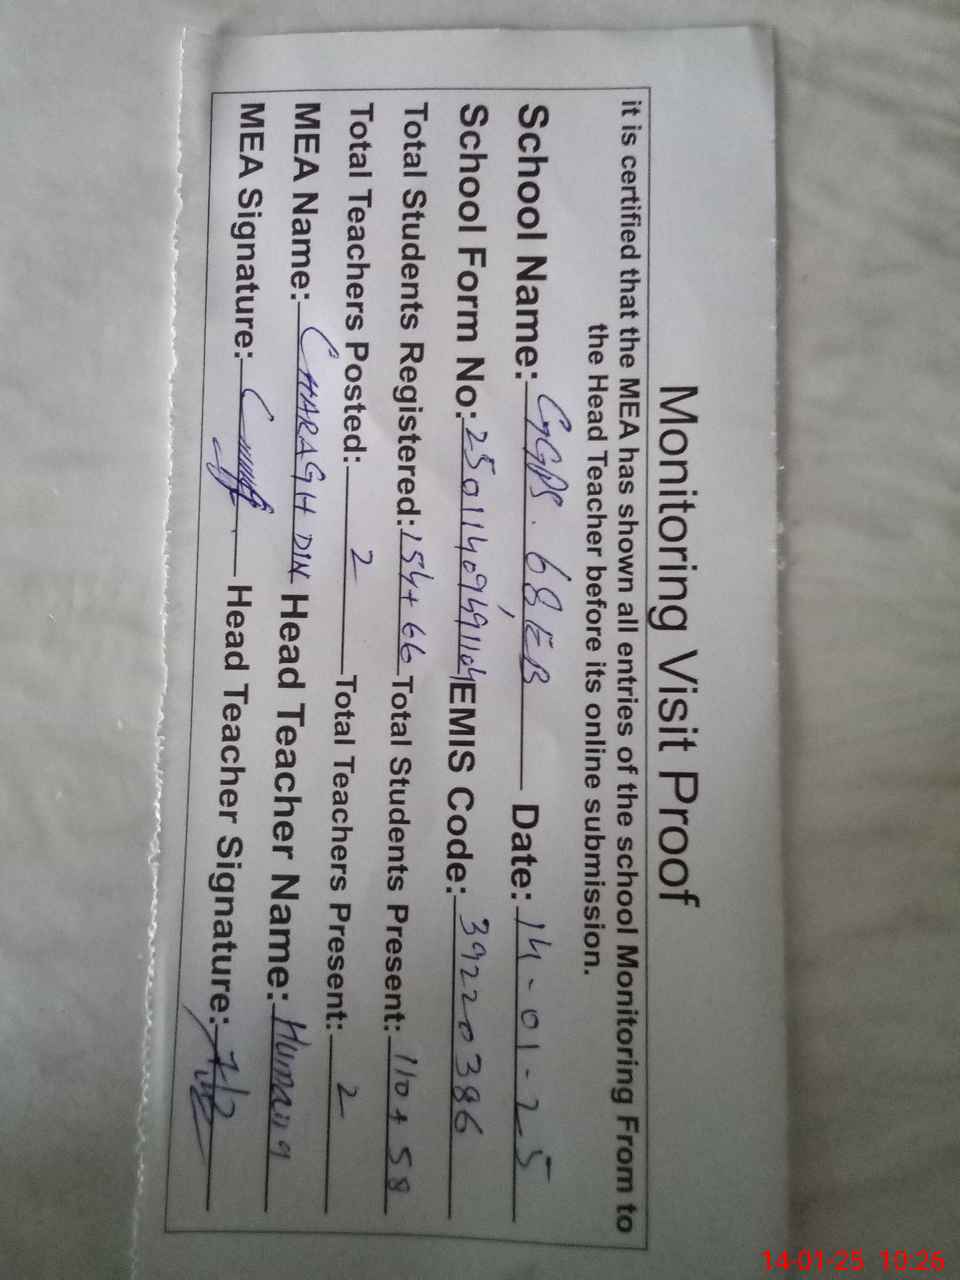 Monitoring Visit Proof
it is certified that the MEA has shown all entries of the school Monitoring From to
the Head Teacher before its online submission.
School Name: GGPS. 68/EB Date: 14-01-25
School Form No: EMIS Code: 39220386
Total Students Registered: 154+66 Total Students Present: 110+58
Total Teachers Posted: 2 Total Teachers Present: 2
MEA Name: CHARAGH DIN Head Teacher Name: Humaira
MEA Signature: Head Teacher Signature:
14-01-25 10:26